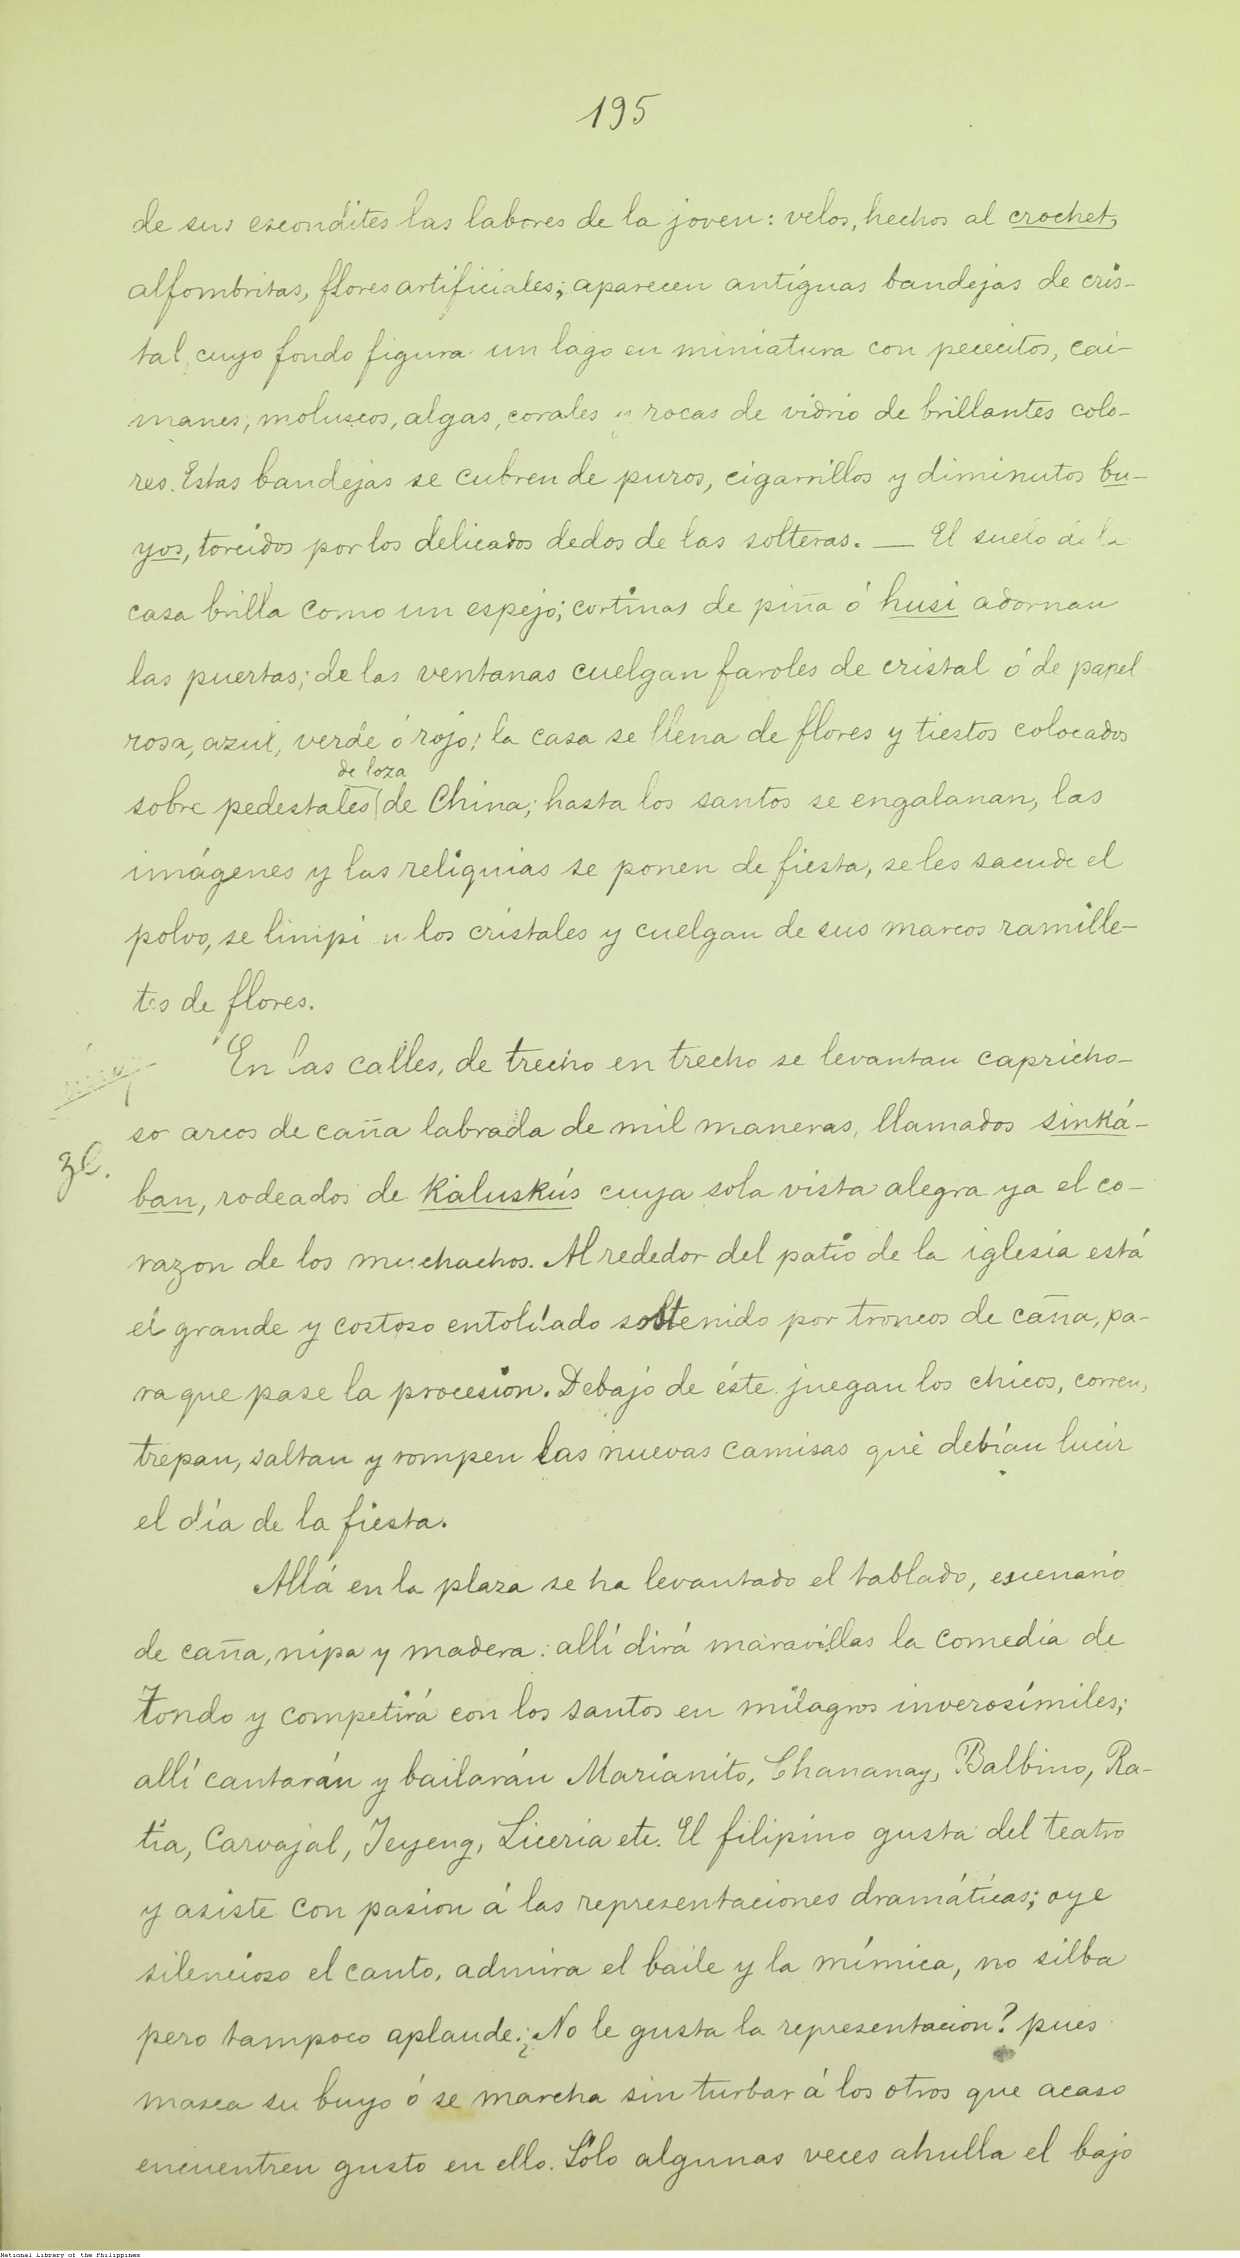 195
de sus escondites las labores de la joven: velos, hechos al crochet,
alfombritas, flores artificiales; aparecen antíguas bandejas de cris-
tal, cuyo fondo figura un lago en miniatura con pececitos, cai-
manes, moluscos, algas, corales y rocas de vidrio de brillantes colo-
res. Estas bandejas se cubren de puros, cigarrillos y diminutos bu-
yos, torcidos por los delicados dedos de las solteras. — El suelo de la
casa brilla como un espejo; cortinas de piña ó husi adornan
las puertas; de las ventanas cuelgan faroles de cristal ó de papel
rosa, azul, verde ó rojo; la casa se llena de flores y tiestos colocados
de loza
sobre pedestales de China; hasta los santos se engalanan, las
imágenes y las reliquias se ponen de fiesta, se les sacude el
polvo, se limpian los cristales y cuelgan de sus marcos ramille-
tes de flores.
En las calles, de trecho en trecho se levantan capricho-
so arcos de caña labrada de mil maneras, llamados sinká-
zl.
ban, rodeados de Kaluskús cuya sola vista alegra ya el co-
razon de los muchachos. Al rededor del patio de la iglesia está
el grande y costoso entoldado sostenido por troncos de caña, pa-
ra que pase la procesion. Debajo de éste juegan los chicos, corren,
trepan, saltan y rompen las nuevas camisas que debían lucir
el día de la fiesta.
Allá en la plaza se ha levantado el tablado, escenario
de caña, nipa y madera: allí dirá maravillas la comedia de
Tondo y competirá con los santos en milagros inverosímiles;
allí cantarán y bailarán Marianito, Chananay, Balbino, Ra-
tia, Carvajal, Yeyeng, Liceria etc. El filipino gusta del teatro
y asiste con pasion á las representaciones dramáticas; oye
silencioso el canto, admira el baile y la mímica, no silba
pero tampoco aplaude. ¿No le gusta la representacion? pues
masca su buyo ó se marcha sin turbar á los otros que acaso
encuentren gusto en ello. Sólo algunas veces ahulla el bajo
National Library of the Philippines